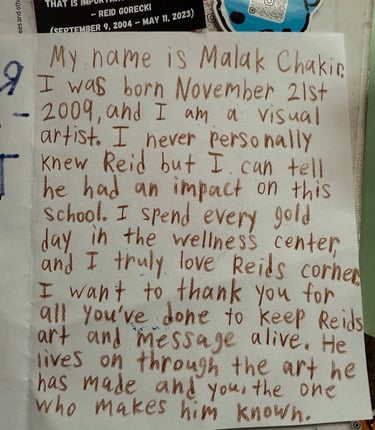 THAT IS IMPORTAN
– REID GORECKI
(SEPTEMBER 9, 2004 – MAY 11, 2023)
My name is Malak Chakir.
I was born November 21st
2009, and I am a visual
artist. I never personally
knew Reid but I can tell
he had an impact on this
school. I spend every gold
day in the wellness center,
and I truly love Reids corner.
I want to thank you for
all you've done to keep Reids
art and message alive. He
lives on through the art he
has made and you, the one
who makes him known.